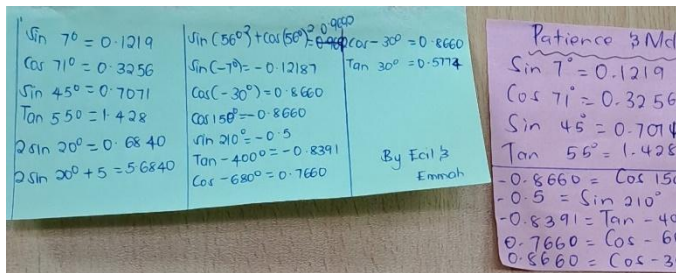 Sin 7° = 0.1219
Cos 71° = 0.3256
Sin 45° = 0.7071
Tan 55° = 1.428
2 sin 20° = 0.6840
2 sin 20° + 5 = 5.6840
Sin(-7°) = -0.12187
Cos(-30°) = 0.8660
Cos 150° = -0.8660
Sin 210° = -0.5
Tan -400° = -0.8391
Cos -680° = 0.7660
Cos -30° = 0.8660
Tan 30° = 0.5774
By Ecil &
Emmah
Patience & Md
Sin 7° = 0.1219
Cos 71° = 0.3256
Sin 45° = 0.7071
Tan 55° = 1.428
-0.8660 = Cos 150
-0.5 = Sin 210°
-0.8391 = Tan -40
0.7660 = Cos -6
0.8660 = Cos -3